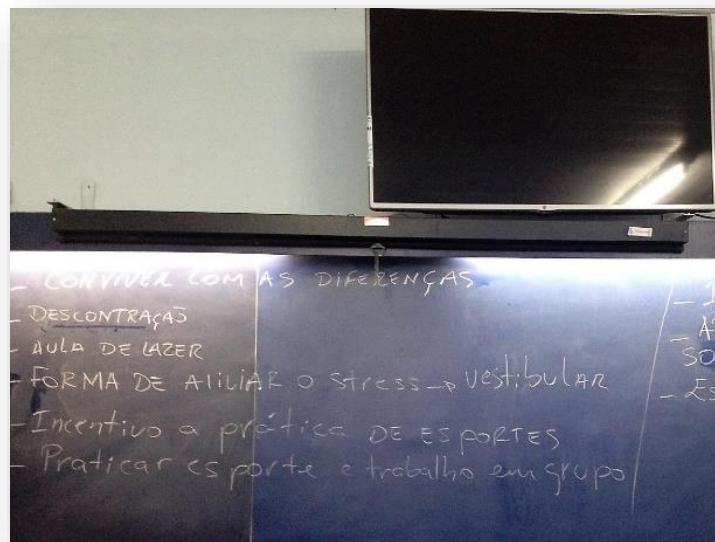 - CONVIVER COM AS DIFERENÇAS
- DESCONTRAÇAÕ
- AULA DE LAZER
- FORMA DE AlILIAR O stress → vestibulAR
- Incentivo a prática DE ESPORTES
- Praticar esporte e trabalho em grupo